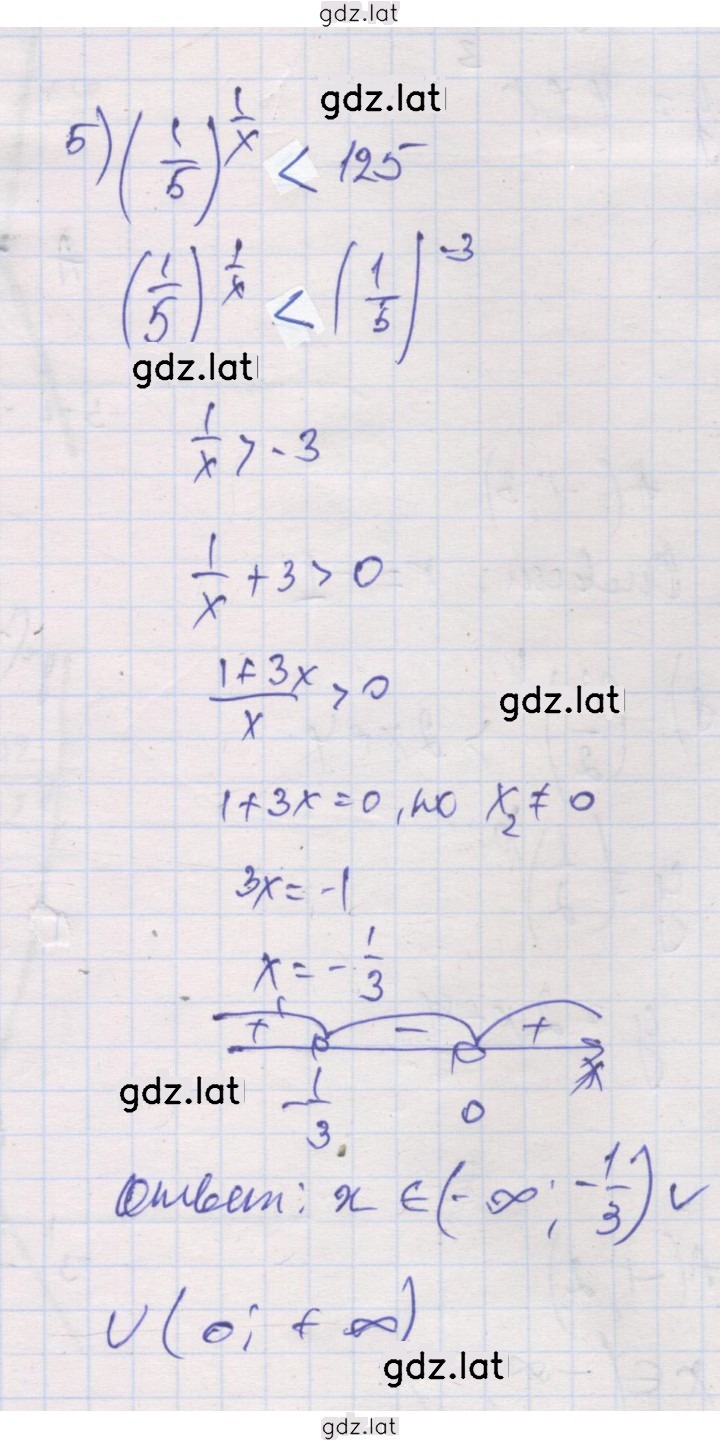 gdz.lat
gdz.lat
5) (1/5)^(1/x) < 125
(1/5)^(1/x) < (1/5)^-3
gdz.lat
1/x > -3
1/x + 3 > 0
(1+3x)/x > 0
gdz.lat
1+3x=0, но x₂ ≠ 0
3x = -1
x = -1/3
+ - +
x
gdz.lat
-1/3 0
Ответ: x ∈ (-∞; -1/3) ∪
∪ (0; +∞)
gdz.lat
gdz.lat